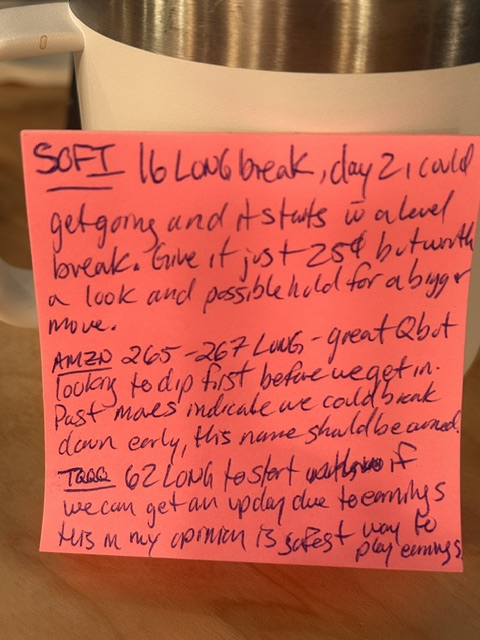 SOFI 16 LONG break, day 2, could
get going and it starts w a level
break. Give it just 25¢ but worth
a look and possible hold for a bigger
move.
AMZN 265-267 LONG - great Q but
looking to dip first before we get in.
Past moves indicate we could break
down early, this name should be owned.
TQQQ 62 LONG to start if
we can get an up day due to earnings
this in my opinion is safest way to
play earnings